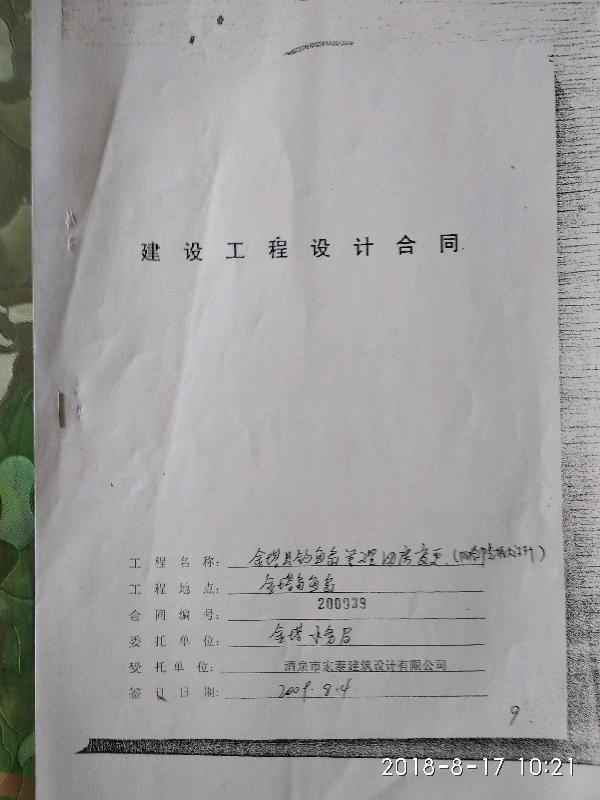 建设工程设计合同
工程名称: 金塔县钓鱼岛管理用房变更
工程地点: 金塔
合同编号: 200939
委托单位: 金塔水务局
受托单位: 酒泉市宏泰建筑设计有限公司
签订日期: 2009.8.4
9.
2018-8-17 10:21